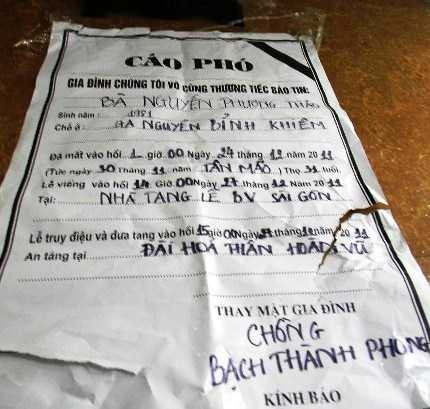 CÁO PHÓ
GIA ĐÌNH CHÚNG TÔI VÔ CÙNG THƯƠNG TIẾC BÁO TIN:
BÀ NGUYỄN PHƯƠNG THẢO
Sinh năm : 1981
Chỗ ở : GA NGUYỄN BỈNH KHIÊM
Đã mất vào hồi 1 giờ 00 Ngày 24 tháng 12 năm 2011
(Tức ngày 30 Tháng 11 năm TÂN MÃO) Thọ 31 tuổi.
Lễ viếng vào hồi 14 Giờ 00 Ngày 27 tháng 12 Năm 2011
Tại: NHÀ TANG LỄ BV SÀI GÒN
Lễ truy điệu và đưa tang vào hồi 15 giờ 00 Ngày 27 tháng 12 năm 2011
An táng tại ĐÀI HOÁ THÂN HOÀN VŨ
THAY MẶT GIA ĐÌNH
CHỒNG
BẠCH THÀNH PHONG
KÍNH BÁO